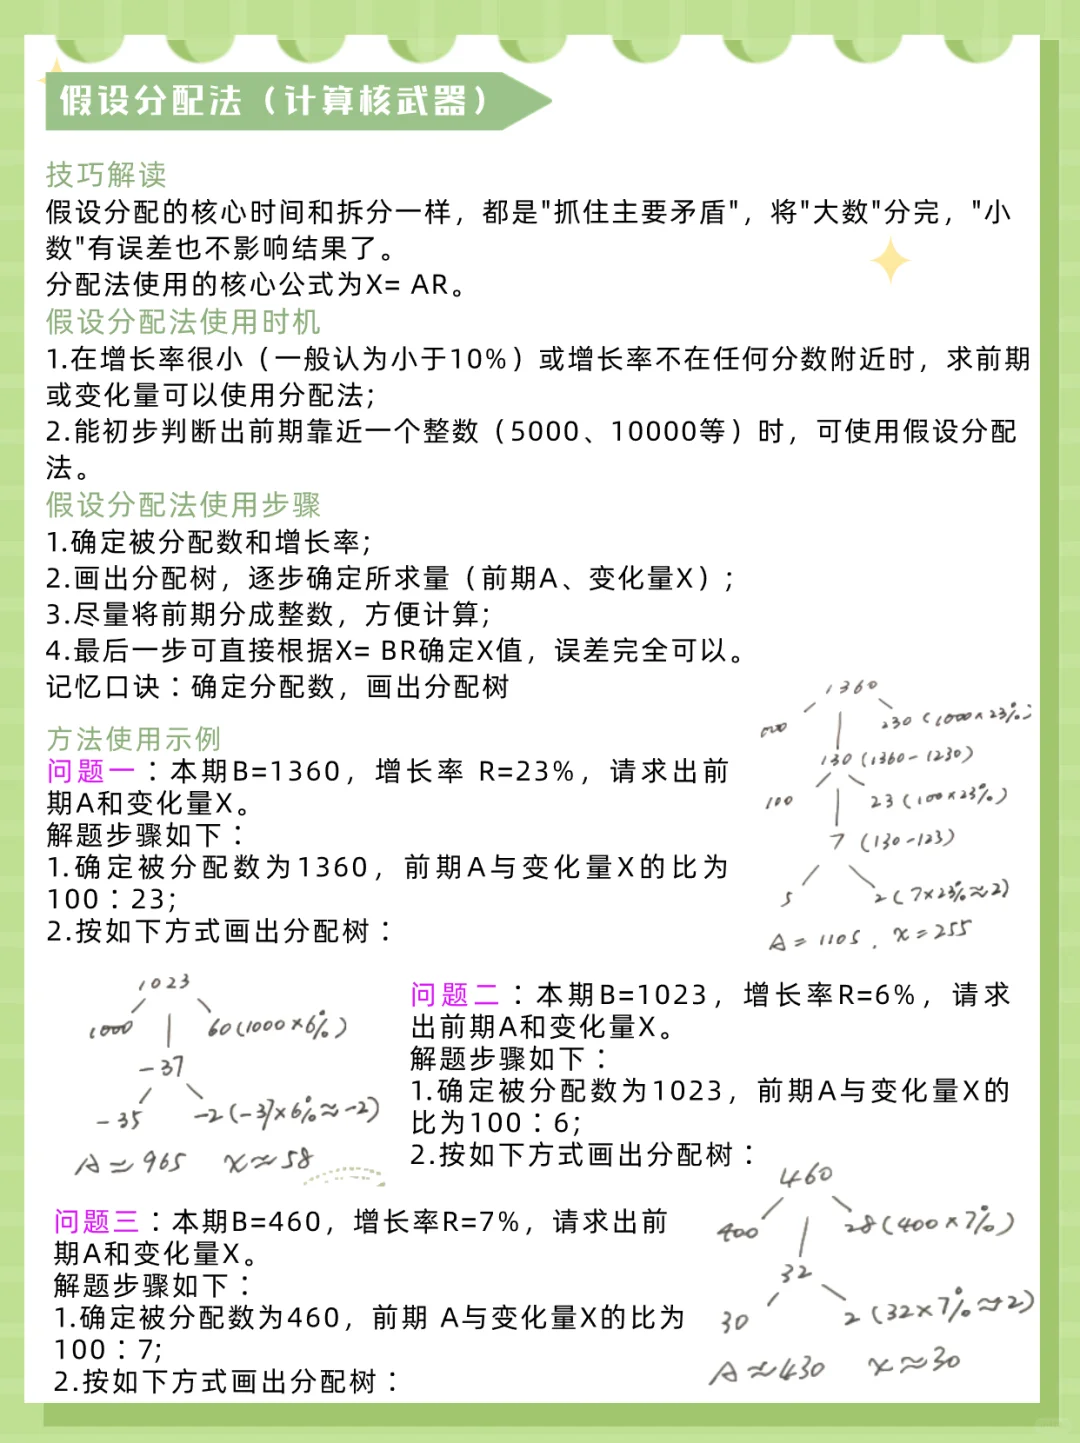 假设分配法（计算核武器）
技巧解读
假设分配的核心时间和拆分一样，都是"抓住主要矛盾"，将"大数"分完，"小
数"有误差也不影响结果了。
分配法使用的核心公式为X= AR。
假设分配法使用时机
1.在增长率很小（一般认为小于10%）或增长率不在任何分数附近时，求前期
或变化量可以使用分配法；
2.能初步判断出前期靠近一个整数（5000、10000等）时，可使用假设分配
法。
假设分配法使用步骤
1.确定被分配数和增长率；
2.画出分配树，逐步确定所求量（前期A、变化量X）；
3.尽量将前期分成整数，方便计算；
4.最后一步可直接根据X= BR确定X值，误差完全可以。
记忆口诀：确定分配数，画出分配树
方法使用示例
问题一：本期B=1360，增长率 R=23%，请求出前
期A和变化量X。
解题步骤如下：
1.确定被分配数为1360，前期A与变化量X的比为
100：23；
2.按如下方式画出分配树：
1360
230（1000×23%）
130（1360-1230）
100
23（100×23%）
7（130-123）
5
2（7×23%≈2）
A=1105．X=255
1023
1000
60（1000×6%）
-37
-35
-2（-37×6%≈-2）
A≈965 X≈58
问题二：本期B=1023，增长率R=6%，请求
出前期A和变化量X。
解题步骤如下：
1.确定被分配数为1023，前期A与变化量X的
比为100：6；
2.按如下方式画出分配树：
问题三：本期B=460，增长率R=7%，请求出前
期A和变化量X。
解题步骤如下：
1.确定被分配数为460，前期 A与变化量X的比为
100：7；
2.按如下方式画出分配树：
460
400
28（400×7%）
32
30
2（32×7%≈2）
A≈430 X≈30